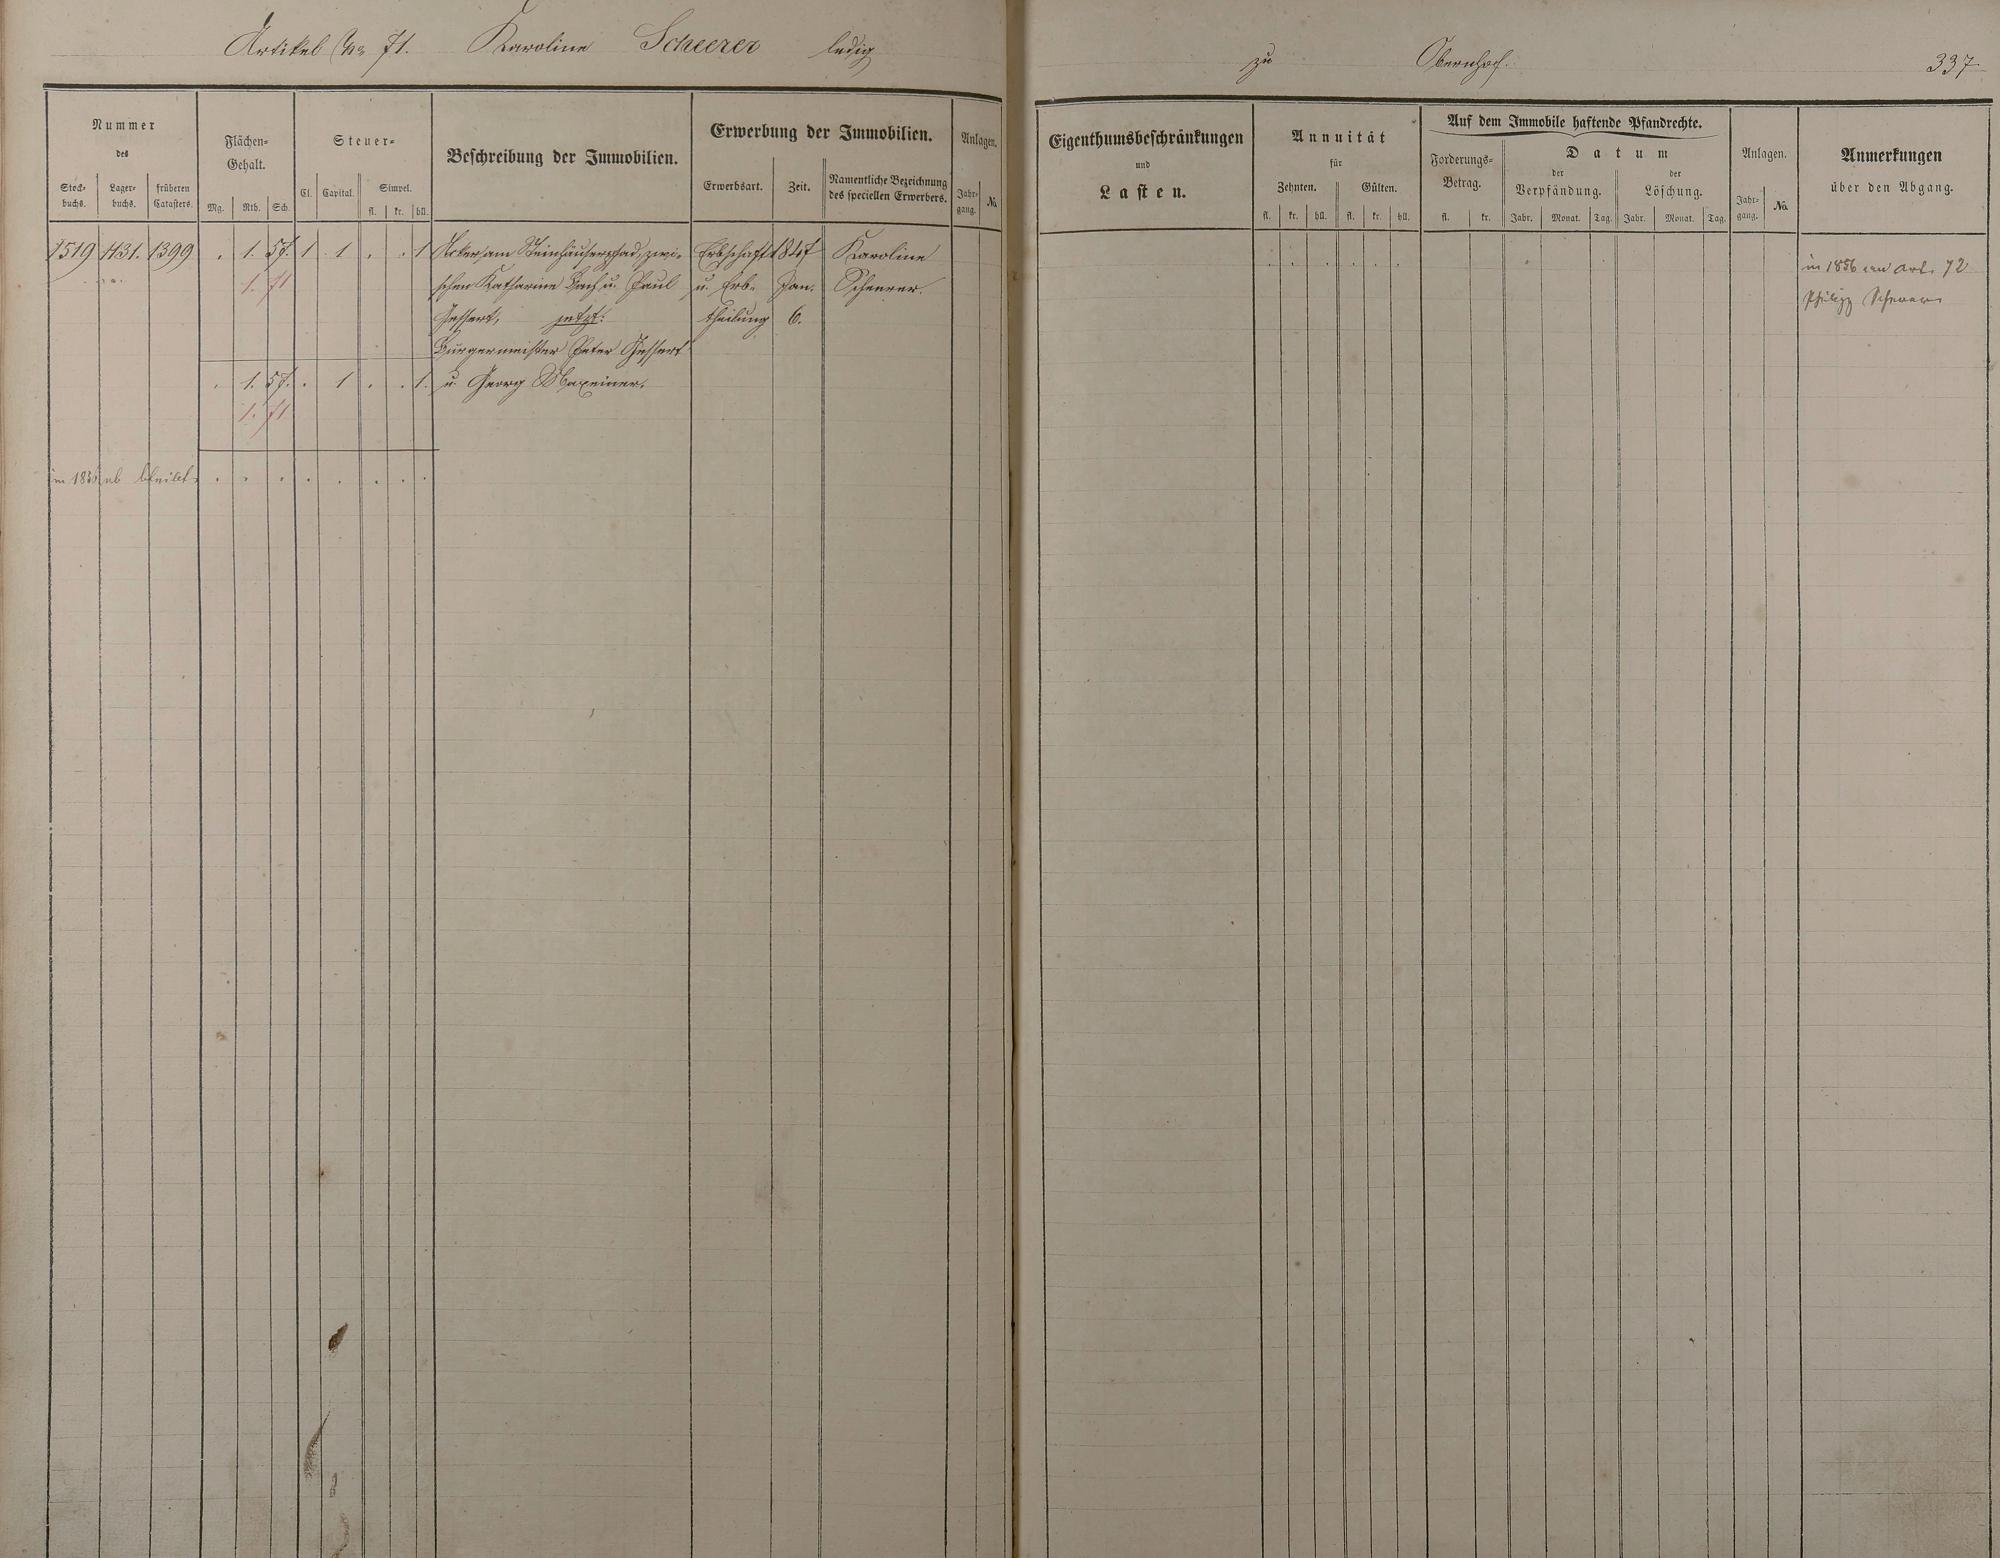 Artikel No 71. Karoline Scheerer ledig zu Obernhof. 337
Nummer des
Stock-buchs. Lager-buchs. früheren Catasters.
Flächen-Gehalt.
Mg. Rth. Sch.
Steuer-
Cl. Capital. Simpel.
fl. kr. hll.
Beschreibung der Immobilien.
Erwerbung der Immobilien.
Erwerbsart. Zeit. Namentliche Bezeichnung des speciellen Erwerbers.
Anlagen.
Jahr-gang. No.
Eigenthumsbeschränkungen
und
Lasten.
Annuität
für
Zehnten. Gülten.
fl. kr. hll. fl. kr. hll.
Auf dem Immobile haftende Pfandrechte.
Forderungs-Betrag.
fl. kr.
Datum
der Verpfändung. der Löschung.
Jahr. Monat. Tag. Jahr. Monat. Tag.
Anlagen.
Jahr-gang. No.
Anmerkungen
über den Abgang.
1519 1431. 1399 . 1. 57. 1 1 . . 1 Acker am Steinhäuserpfad, zwi- Erbschaft 1847 Karoline
1. 71 schen Katharine Bach u. Paul u. Erb- Jan. Scheerer.
Gessert, jetzt: theilung 6.
Bürgermeister Peter Gessert
. 1. 57. . 1 . . 1. u. Georg Maxeiner.
1. 71
in 1856 ab
in 1856 an Art. 72
Philipp Scheerer